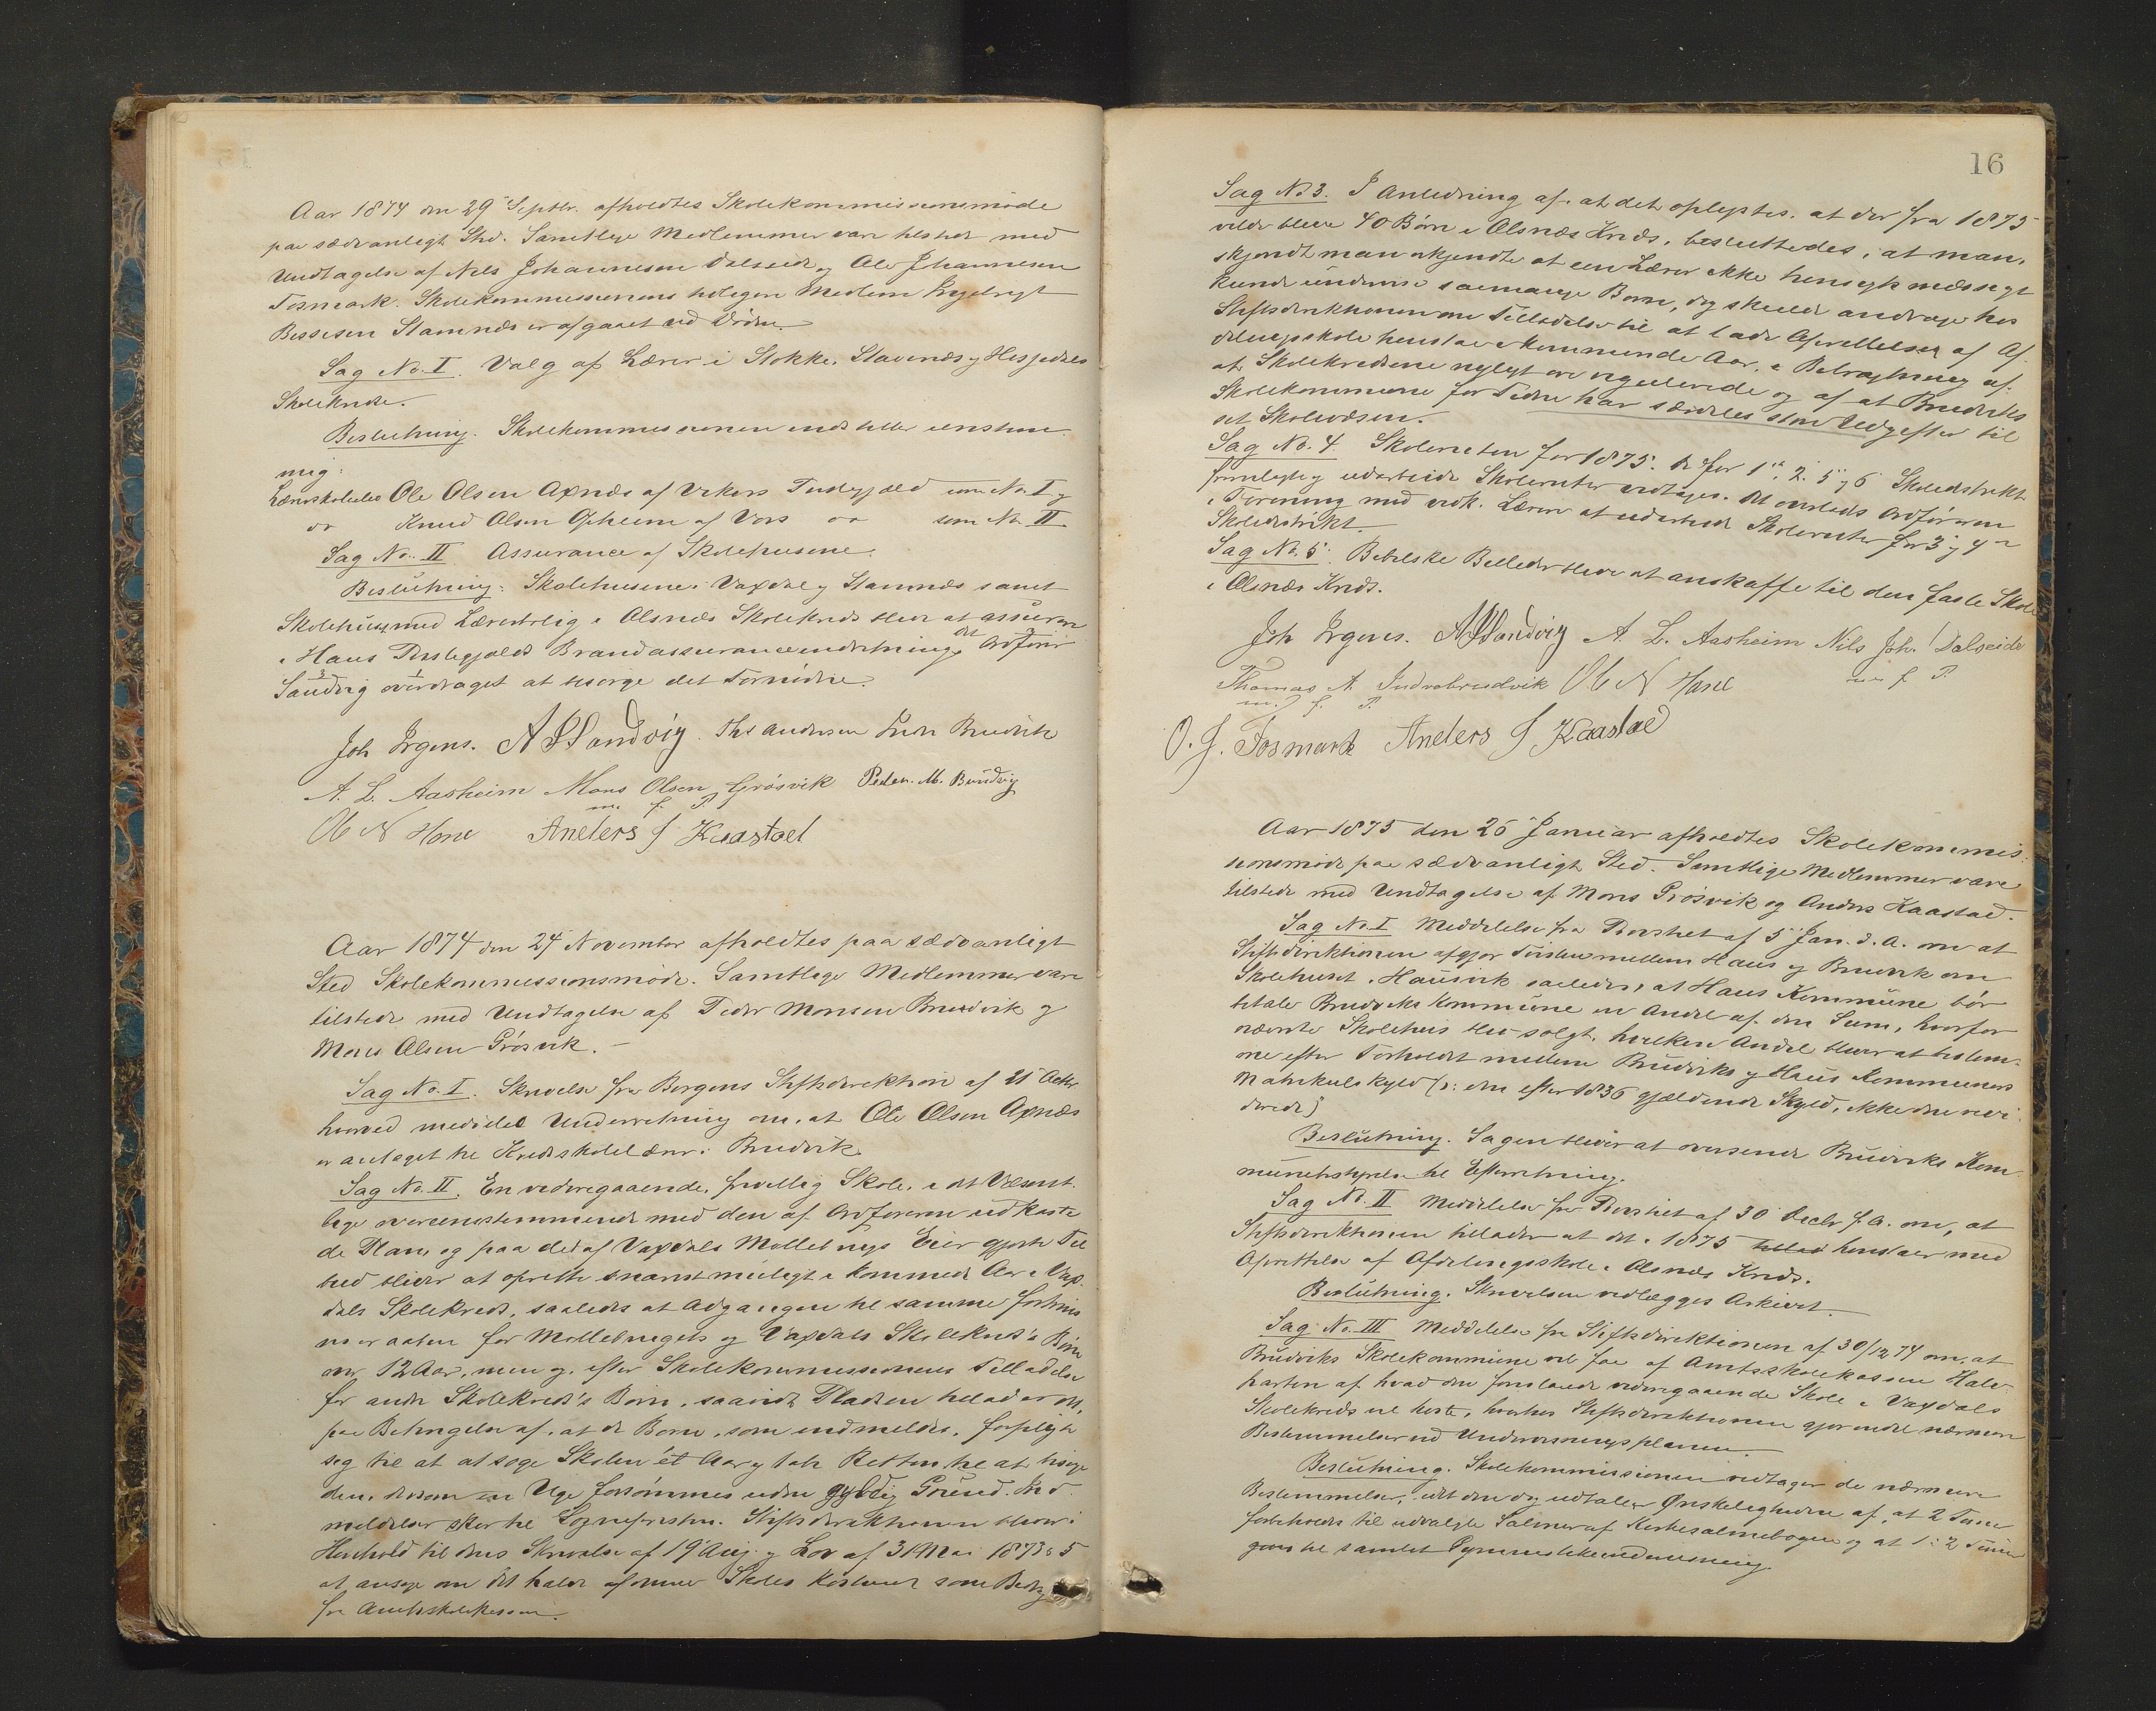 Aar 1874 den 29 Septbr. afholdtes Skolekommissionsmøde
paa sædvanligt Sted. Samtlige Medlemmer vare tilstede med
Undtagelse af Nils Johannesen Dalseide og Ole Johannesen
Fosmark. Skolekommissionens tidligere Medlem Engelregt
Bessesen Stamnæs er afgaaet ved Døden.
Sag No. I. Valg af Lærer i Stokke, Stavenæs og Hesjedals
Skolekredse.
Beslutning. Skolekommissionen indstiller eenstem-
mig:
Lærerskoleelev Ole Olsen Axnæs af Vikørs Prestegjæld som No. I og
Knud Olsen Gjheim af Vors som No. II
Sag No. II Assurance af Skolehusene.
Beslutning: Skolehusene i Vaxdal og Stamnæs samt
Skolehuset med Lærerbolig i Olsnæs Skolekreds blive at assurere
i Haus Prestegjælds Brandassuranceindretning, det Ordfører
Sandvig overdraget at besørge det Fornødne.
Joh Irgens. A Sandvig Ths Andersen Indre Bruvik
A. L. Aasheim Mons Olsen Grøsvik Peder. M. Bruvig
m. f. P.
Ole N Hone Anders J Kaastad
Aar 1874 den 24 November afholdtes paa sædvanligt
Sted Skolekommissionsmøde. Samtlige Medlemmer vare
tilstede med Undtagelse af Peder Monsen Bruvik og
Mons Olsen Grøsvik.
Sag No. I. Skrivelse fra Bergens Stiftsdirektion af 21 Octbr
hvorved meddeles Underretning om, at Ole Olsen Axnæs
er antaget til Kredsskolelærer i Bruvik.
Sag No. II. En videregaaende, frivillig Skole, i det Væsent-
lige overensstemmende med den af Ordføreren udkaste-
de Plan og paa det af Vaxdals Møllebrugs Eier gjorte Til-
bud bliver at oprette snarest muligt i kommende Aar i Vax-
dals Skolekreds, saaledes at Adgangen til samme fortrins-
vis er aaben for Møllebrugets og Vaxdals Skolekreds's Børn
over 12 Aar, men og, efter Skolekommissionens Tilladelse
for andre Skolekreds's Børn, saavidt Pladsen tillader det,
paa Betingelse af, at de Børn, som indmeldes, forpligte
sig til at at søge Skolen ét Aar og tabe Retten til at besøge
den, dersom en Uge forsømmes uden gyldig Grund. Ind-
meldelser skee til Sognepresten. Stiftsdirektionen bliver i
Henhold til dens Skrivelse af 19 Aug. og Lov af 31 Mai 1873 § 5
at ansøge om det halve af denne Skoles Kostende som Bidrag
fra Amtsskolekassen.
16
Sag No 3. I Anledning af, at det oplystes, at der fra 1875
vilde blive 40 Børn i Olsnæs Kreds, besluttedes, at man,
skjøndt man erkjendte at een Lærer ikke hensigtsmæssigt
kunde undervise saamange Børn, dog skulde andrage hos
Stiftsdirektionen om Tilladelse til at lade Oprettelsen af Af-
delingsskole henstaa i kommende Aar, i Betragtning af,
at Skolekredsene nyligt ere regulerede og af at Bruviks
Skolekommune for Tiden har særdeles store Udgifter til
sit Skolevæsen.
Sag No. 4 Skoleruten for 1875. De for 1ste 2. 5 og 6 Skoledistrikt
fremlagte og udarbeide Skoleruter vedtages. Det overlades Ordføreren
i Forening med vedk. Lærere at udarbeide Skoleruter for 3 og 4de
Skoledistrikt.
Sag No. 5. Bibelske Billeder blive at anskaffe til den faste Skole
i Olsnæs Kreds.
Joh Irgens. A Sandvig A. L. Aasheim Nils Joh. Dalseide
m f P.
Thomas A Indrebruvik Ole N Hone
m. f. P.
O. J. Fosmark Anders J Kaastad
Aar 1875 den 26 Januar afholdtes Skolekommis-
sionsmøde paa sædvanligt Sted. Samtlige Medlemmer vare
tilstede med Undtagelse af Mons Grøsvik og Anders Kaastad.
Sag No. I Meddelelse fra Provstiet af 5 Jan. d. A. om at
Stiftsdirektionen afgjør Tvisten mellem Haus og Bruvik om
Skolehuset i Hausvik saaledes, at Haus Kommune bør
betale Bruviks Kommune en Andel af den Sum, hvorfor
nævnte Skolehus blev solgt, hvilken Andel bliver at bestem-
me efter Forholdet mellem Bruviks og Haus Kommuners
Matrikulskyld (: den efter 1836 gjældende Skyld, ikke den revi-
derede)
Beslutning. Sagen bliver at oversende Bruviks Kom-
munebestyrelse til Efterretning.
Sag No. II Meddelelse fra Provstiet af 30 Decbr f. A. om, at
Stiftsdirektionen tillader at det i 1875 tillad henstaaer med
Oprettelse af Afdelingsskole i Olsnæs Kreds.
Beslutning. Skrivelsen vedlægges Arkivet.
Sag No. III Meddelelse fra Stiftsdirektionen af 30/12 74 om, at
Bruviks Skolekommune vil faa af Amtsskolekassen Halv-
parten af hvad den foreslaaede videregaaende Skole i Vaxdals
Skolekreds vil koste, hvorhos Stiftsdirektionen gjør endel nærmere
Bestemmelser ved Undervisningsplanen.
Beslutning. Skolekommissionen vedtager de nærmere
Bestemmelser, idet den dog udtaler Ønskeligheden af, at 2 Timer
forbeholdes til udvalgte Salmer af Kirkesalmebogen og at 1 à 2 Timer
gives til samlet Gymnastikundervisning